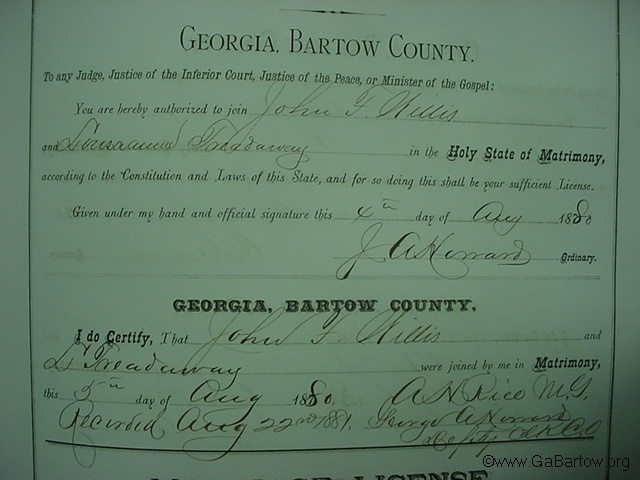 GEORGIA, BARTOW COUNTY.
To any Judge, Justice of the Inferior Court, Justice of the Peace, or Minister of the Gospel:
You are hereby authorized to join John F. Willis
and Treadaway in the Holy State of Matrimony,
according to the Constitution and Laws of this State, and for so doing this shall be your sufficient License.
Given under my hand and official signature this 4th day of Aug 1880
J A Howard Ordinary.
GEORGIA, BARTOW COUNTY.
I do Certify, That John F. Willis and
L Treadaway were joined by me in Matrimony,
this 5th day of Aug 1880. A H Rice M.G.
Recorded Aug 22nd 1881. George A Howard
Depty Clk C.O
©www.GaBartow.org